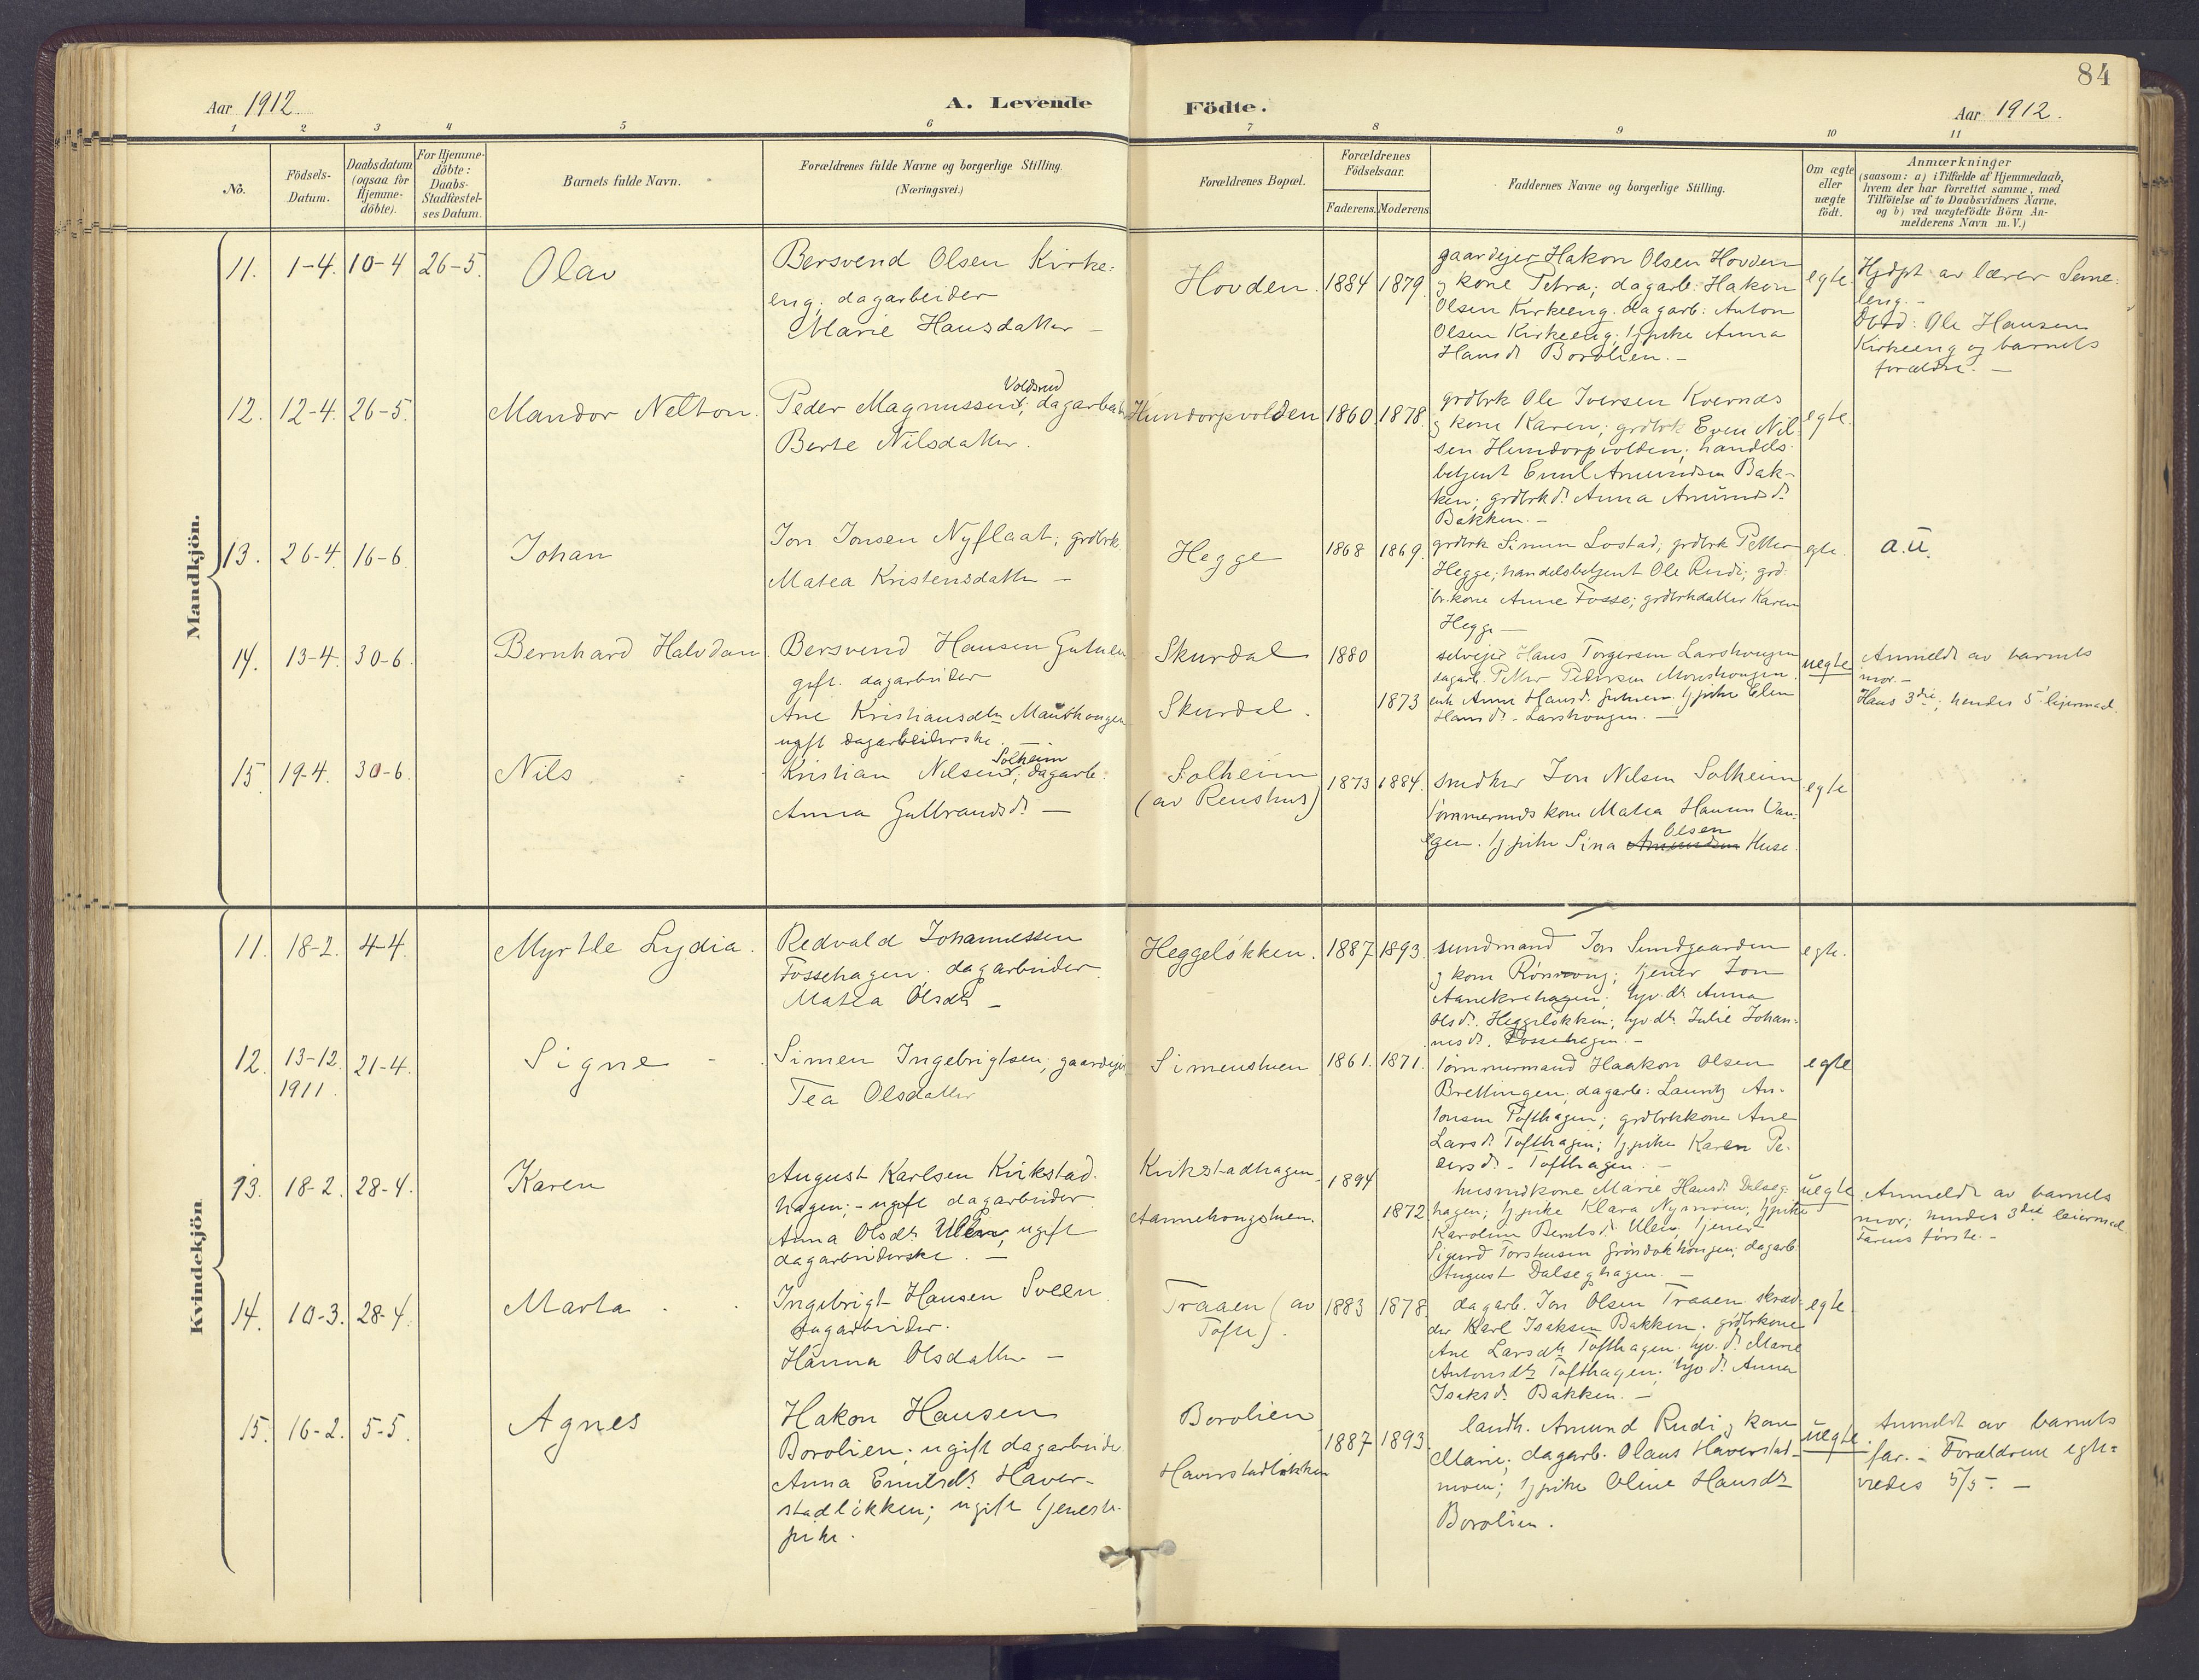 84
Aar 1912.
A. Levende Födte.
Aar 1912.
1 2 3 4 5 6 7 8 9 10 11
No.
Födsels-
Datum.
Daabsdatum
(ogsaa for
Hjemme-
döbte).
For Hjemme-
döbte:
Daabs-
Stadfæstel-
ses Datum.
Barnets fulde Navn.
Forældrenes fulde Navne og borgerlige Stilling.
(Næringsvei.)
Forældrenes Bopæl.
Forældrenes
Födselsaar.
Faderens. Moderens.
Faddernes Navne og borgerlige Stilling.
Om ægte
eller
uægte
födt.
Anmærkninger
(saasom: a) i Tilfælde af Hjemmedaab,
hvem der har forrettet samme, med
Tilföielse af to Daabsvidners Navne.
og b) ved uægtefödte Börn An-
melderens Navn m. V.)
Mandkjön.
11. 1-4. 10-4 26-5. Olav
Bersvend Olsen Kirke-
eng; dagarbeider
Marie Hansdatter -
Hovden. 1884 1879.
gaardejer Hakon Olsen Hovden
og kone Petra; dagarb. Hakon
Olsen Kirkeeng. dagarb: Anton
Olsen Kirkeeng; tj pike Anna
Hansdr Borolien. -
egte.
Hjdpt av lærer Seme-
leng. -
Ole Hansen
Kirkeeng og barnets
forældre. -
12. 12-4. 26-5. Mandor Nelton.
Voldsrud
Peder Magnussen, dagarbeider
Berte Nilsdatter.
Hundorpvolden 1860 1878.
grdbrk Ole Iversen Kvernæs
og kone Karen; grdbrk Even Nil-
sen Hundorpvolden; handels-
betjent Emil Amundsen Bak-
ken; grdbrkdr Anna Amundsdr
Bakken. -
egte.
13. 26-4. 16-6. Johan
Jon Jonsen Nyflaat; grdbrk.
Matea Kristensdatter -
Hegge 1868 1869.
grdbrk Simen Lostad; grdbrk Petter
Hegge; handelsbetjent Ole Rudi; grd-
br.kone Anne Fosse; grdbrkdatter Karen
Hegge -
egte.
a.u.
14. 13-4. 30-6. Bernhard Halvdan.
Bersvend Hansen Gutuen
gift. dagarbeider
Ane Kristiansdtr Maushougen
ugift dagarbeiderske. -
Skurdal 1880
Skurdal. 1873
selvejer Hans Torgersen Larshougen
dagarb. Petter Pedersen
enke Anne Hansdr. Gutuen. tj pike Elen
Hansdr. Larshougen. -
uegte
Anmeldt av barnets
mor. -
Hans 3die; hendes 5 lejermaal.
15 19-4. 30-6. Nils
Solheim
Kristian Nilsen; dagarb.
Anna Gulbrandsdr -
Solheim
(av Renshus)
1873 1884.
snedker Jon Nilsen Solheim
tömmermds kone Matea Hansen Van-
gen. tj pike Sina Olsen Huse.
egte
Kvindekjön
11. 18-2. 4-4. Myrtle Lydia.
Redvald Johannessen
Fossehagen. dagarbeider
Matea Olsdtr -
Heggelökken. 1887 1893.
sundmand Jon Sundgaarden
og kone Rönnoug; tjener Jon
Aanekrehagen; hjv.dtr Anna
Olsdr. Heggelökken; hjv dtr Julie Johan-
nesdr. Fossehagen. -
egte.
12. 13-12. 21-4. Signe -
1911.
Simen Ingebrigtsen; gaardejer
Tea Olsdatter
Simenstuen 1861. 1871.
Tömmermand Haakon Olsen
Brettingen; dagarb: Lauritz An-
tonsen Tofthagen; grdbrkkone Ane
Larsdr Tofthagen; tj pike Karen Pe-
dersdr. Tofthagen. -
egte
13. 18-2. 28-4. Karen
August Karlsen Kirkstad-
hagen; - ugift dagarbeider
Anna Olsdtr Ulen, ugift
dagarbeiderske. -
Kirkstadhagen 1894
Aannehougstuen. 1872
husmdkone Marie Hansdr Dalseg-
hagen; tj pike Klara Nymoen; tj pike
Karoline Berntsdr Ulen; tjener
Sigurd Torstensen Gröndokhougen; dagarb.
August Dalseghagen. -
uegte
Anmeldt av barnets
mor; hendes 3die leiermaal
Farens förste. -
14. 10-3. 28-4. Marta
Ingebrigt Hansen Sveen
dagarbeider.
Hanna Olsdatter -
Traaen (av
Tofte).
1883 1878
dagarb. Jon Olsen Traaen skræd-
der Karl Isaksen Bakken. grdbrkone
Ane Larsdtr Tofthagen. hjv.dr Marie
Antonsdtr Tofthagen. hjv dr Anna
Isaksdr Bakken. -
egte.
15. 16-2. 5-5. Agnes
Hakon Hansen
Borolien; ugift dagarbeider
Anna Emilsdtr Haver-
stadlökken; ugift tjeneste-
pike.
Borolien
Haverstadlökken
1887 1893.
landh. Amund Rudi og kone
Marie; dagarb. Olaus Haverstad-
moen; tj pike Oline Hansdtr
Borolien.
uegte.
Anmeldt av barnets
far. - Forældrene egte-
viedes 5/5. -